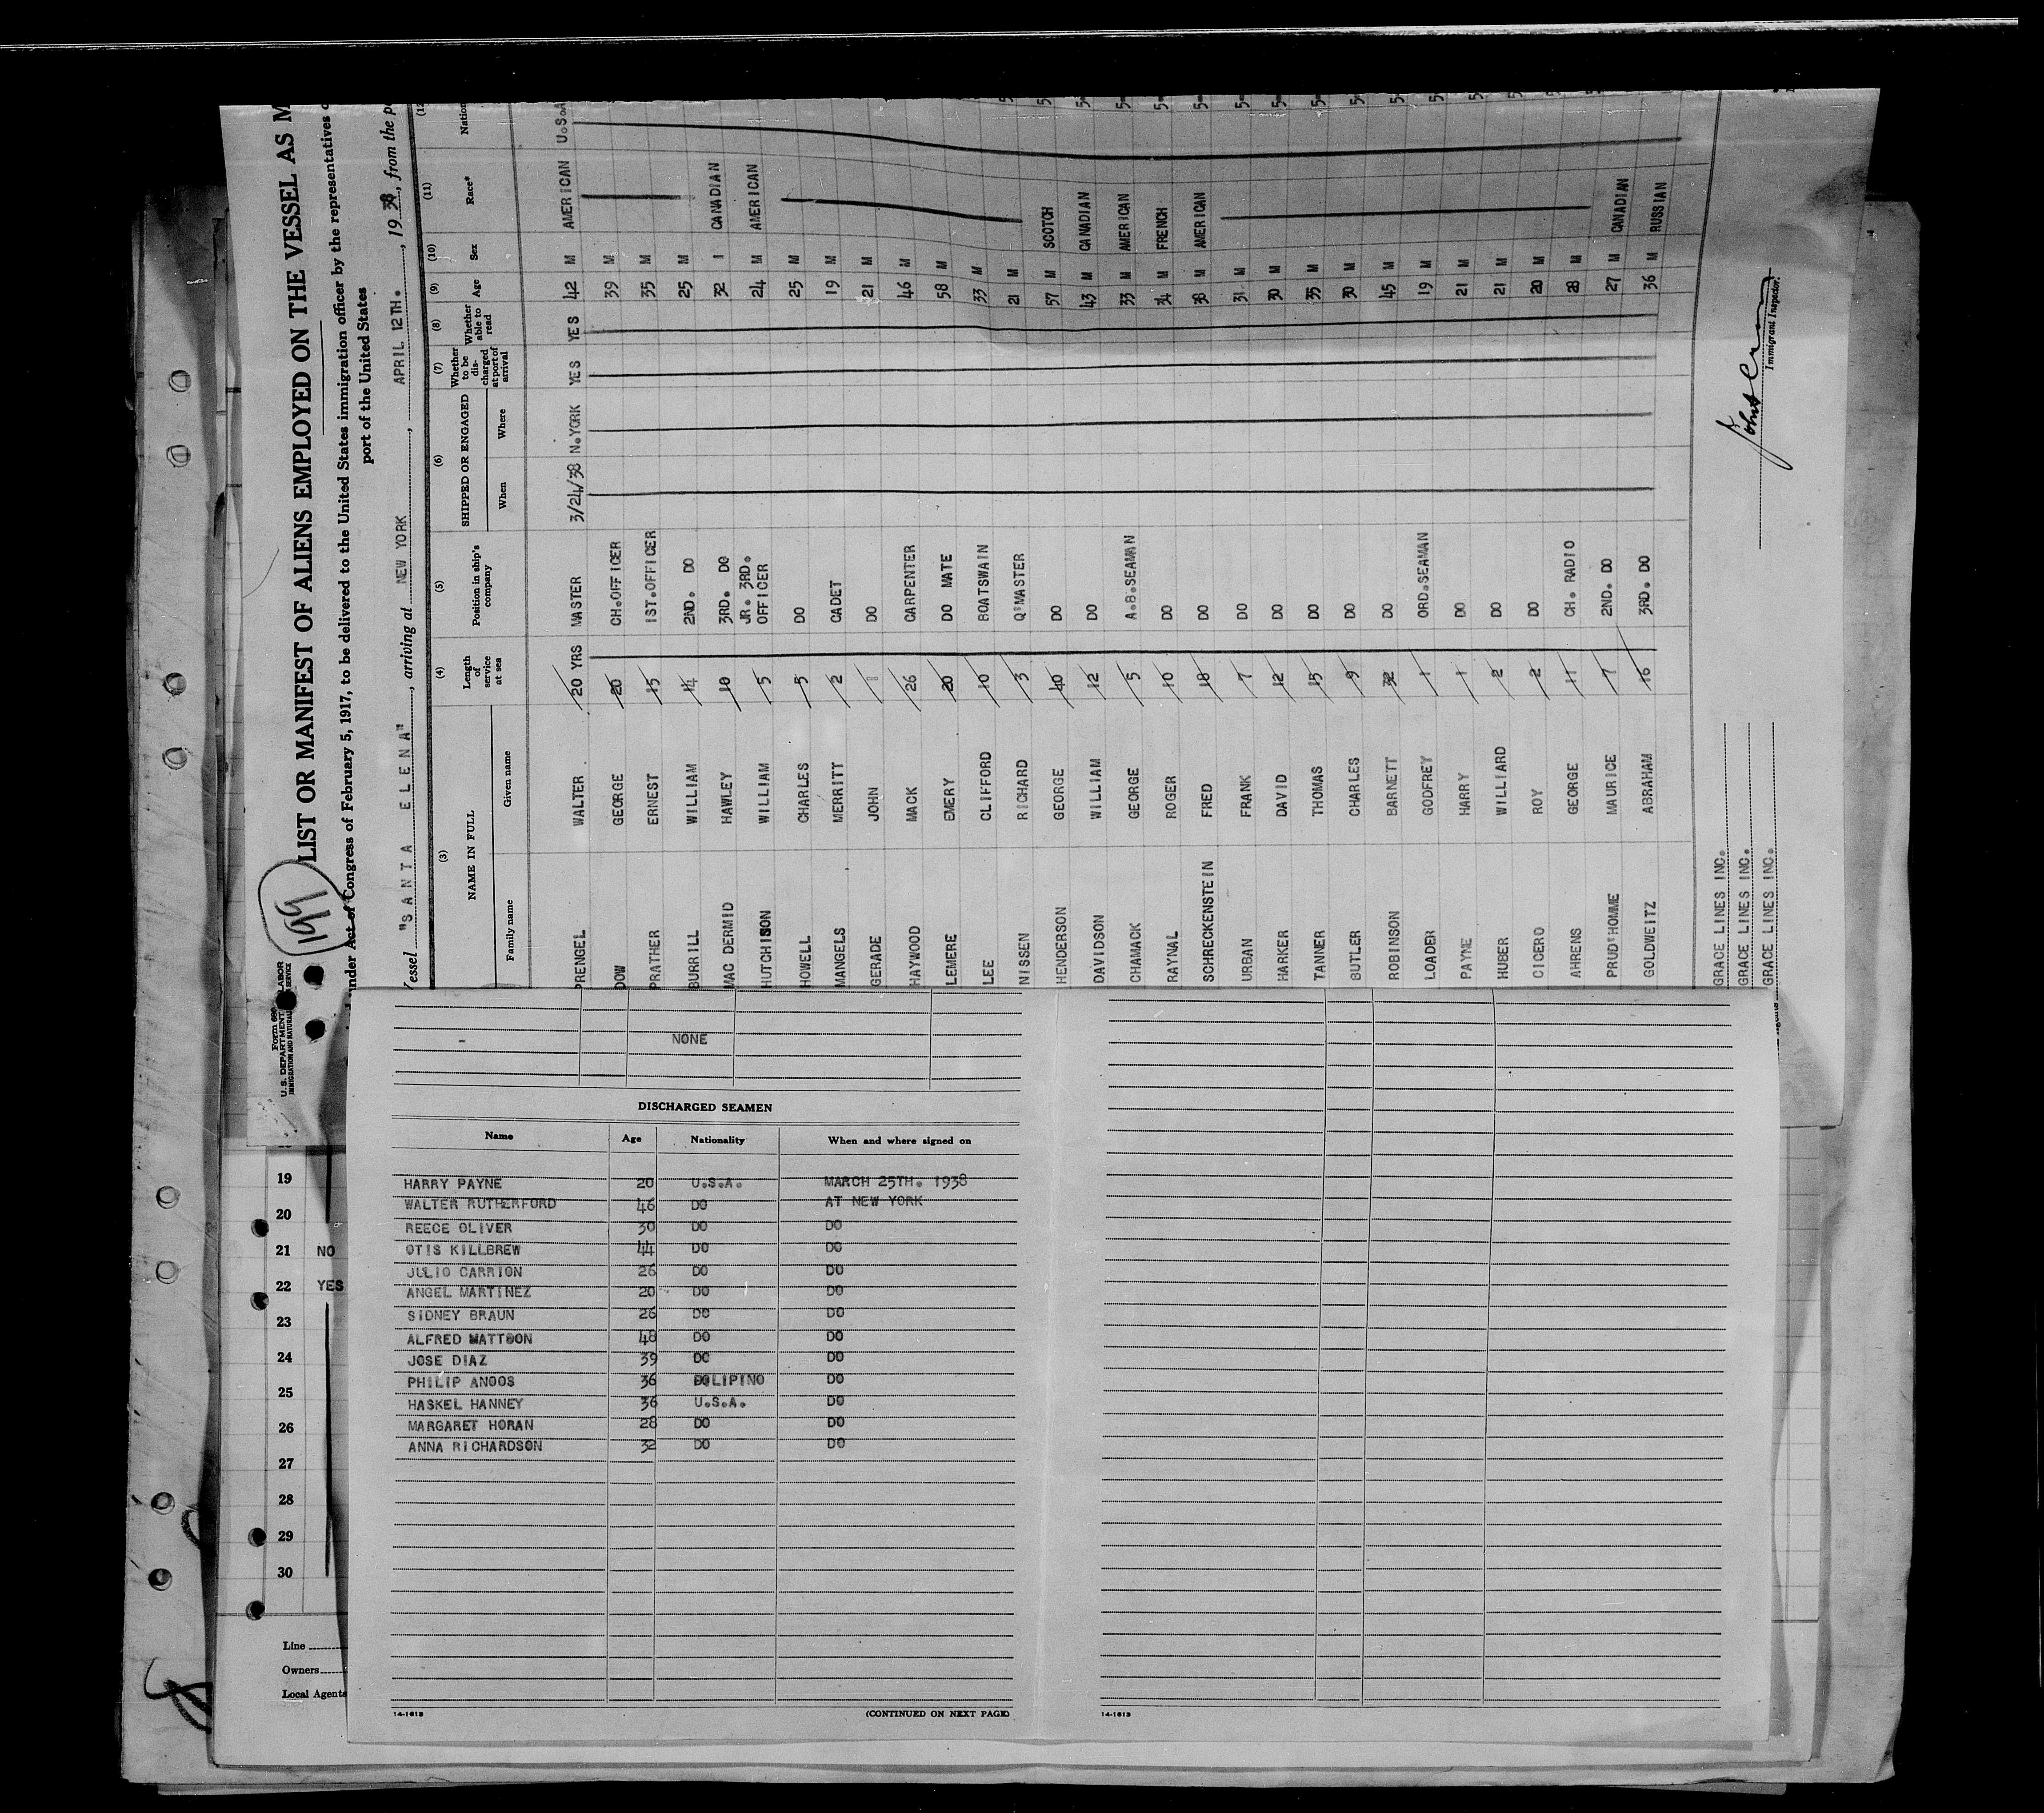 199
Form 689
U.S. DEPARTMENT LABOR
IMMIGRATION AND NATURALIZATION SERVICE
LIST OR MANIFEST OF ALIENS EMPLOYED ON THE VESSEL AS M
under Act of Congress of February 5, 1917, to be delivered to the United States immigration officer by the representatives
port of the United States
Vessel "SANTA ELENA", arriving at NEW YORK, APRIL 12TH., 1938, from the
(3) (4) (5) (6) (7) (8) (9) (10) (11)
NAME IN FULL Length of service at sea Position in ship's company SHIPPED OR ENGAGED Whether to be discharged at port of arrival Whether able to read Age Sex Race*
Family name Given name When Where
PRENGEL WALTER 20 YRS MASTER 3/24/38 N.YORK YES YES 42 M AMERICAN U.S.A
DOW GEORGE 20 CH.OFFICER 39 M
PRATHER ERNEST 15 1ST.OFFICER 35 M
BURRILL WILLIAM 14 2ND. DO 25 M
MAC DERMID HAWLEY 10 3RD. DO 32 CANADIAN
HUTCHISON WILLIAM 5 JR. 3RD. OFFICER 24 M AMERICAN
HOWELL CHARLES 5 DO 25 M
MANGELS MERRITT 2 CADET 19 M
GERADE JOHN 1 DO 21 M
HAYWOOD MACK 26 CARPENTER 46 M
LEMERE EMERY 20 DO MATE 58 M
LEE CLIFFORD 10 BOATSWAIN 33 M
NISSEN RICHARD 3 Q'MASTER 21 M
HENDERSON GEORGE 40 DO 57 M SCOTCH
DAVIDSON WILLIAM 12 DO 43 M CANADIAN
CHAMACK GEORGE 5 A.B.SEAMAN 33 M AMERICAN
RAYNAL ROGER 10 DO 34 M FRENCH
SCHRECKENSTEIN FRED 18 DO 38 M AMERICAN
URBAN FRANK 7 DO 31 M
HARKER DAVID 12 DO 30 M
TANNER THOMAS 15 DO 35 M
BUTLER CHARLES 9 DO 30 M
ROBINSON BARNETT 32 DO 45 M
LOADER GODFREY 1 ORD.SEAMAN 19 M
PAYNE HARRY 1 DO 21 M
HUBER WILLIARD 2 DO 21 M
CICERO ROY 2 DO 20 M
AHRENS GEORGE 11 CH. RADIO 28 M
PRUD'HOMME MAURICE 7 2ND. DO 27 M CANADIAN
GOLDWEITZ ABRAHAM 16 3RD. DO 36 M RUSSIAN
GRACE LINES INC.
GRACE LINES INC.
GRACE LINES INC.
Immigrant Inspector.
- NONE
DISCHARGED SEAMEN
Name Age Nationality When and where signed on
HARRY PAYNE 20 U.S.A. MARCH 25TH. 1938
WALTER RUTHERFORD 46 DO AT NEW YORK
REECE OLIVER 30 DO DO
OTIS KILLBREW 44 DO DO
JULIO CARRION 26 DO DO
ANGEL MARTINEZ 20 DO DO
SIDNEY BRAUN 26 DO DO
ALFRED MATTSON 48 DO DO
JOSE DIAZ 39 DO DO
PHILIP ANOOS 36 DO
HASKEL HANNEY 36 U.S.A. DO
MARGARET HORAN 28 DO DO
ANNA RICHARDSON 32 DO DO
14-1613
(CONTINUED ON NEXT PAGE)
14-1613
19
20
21 NO
22 YES
23
24
25
26
27
28
29
30
Line
Owners
Local Agents